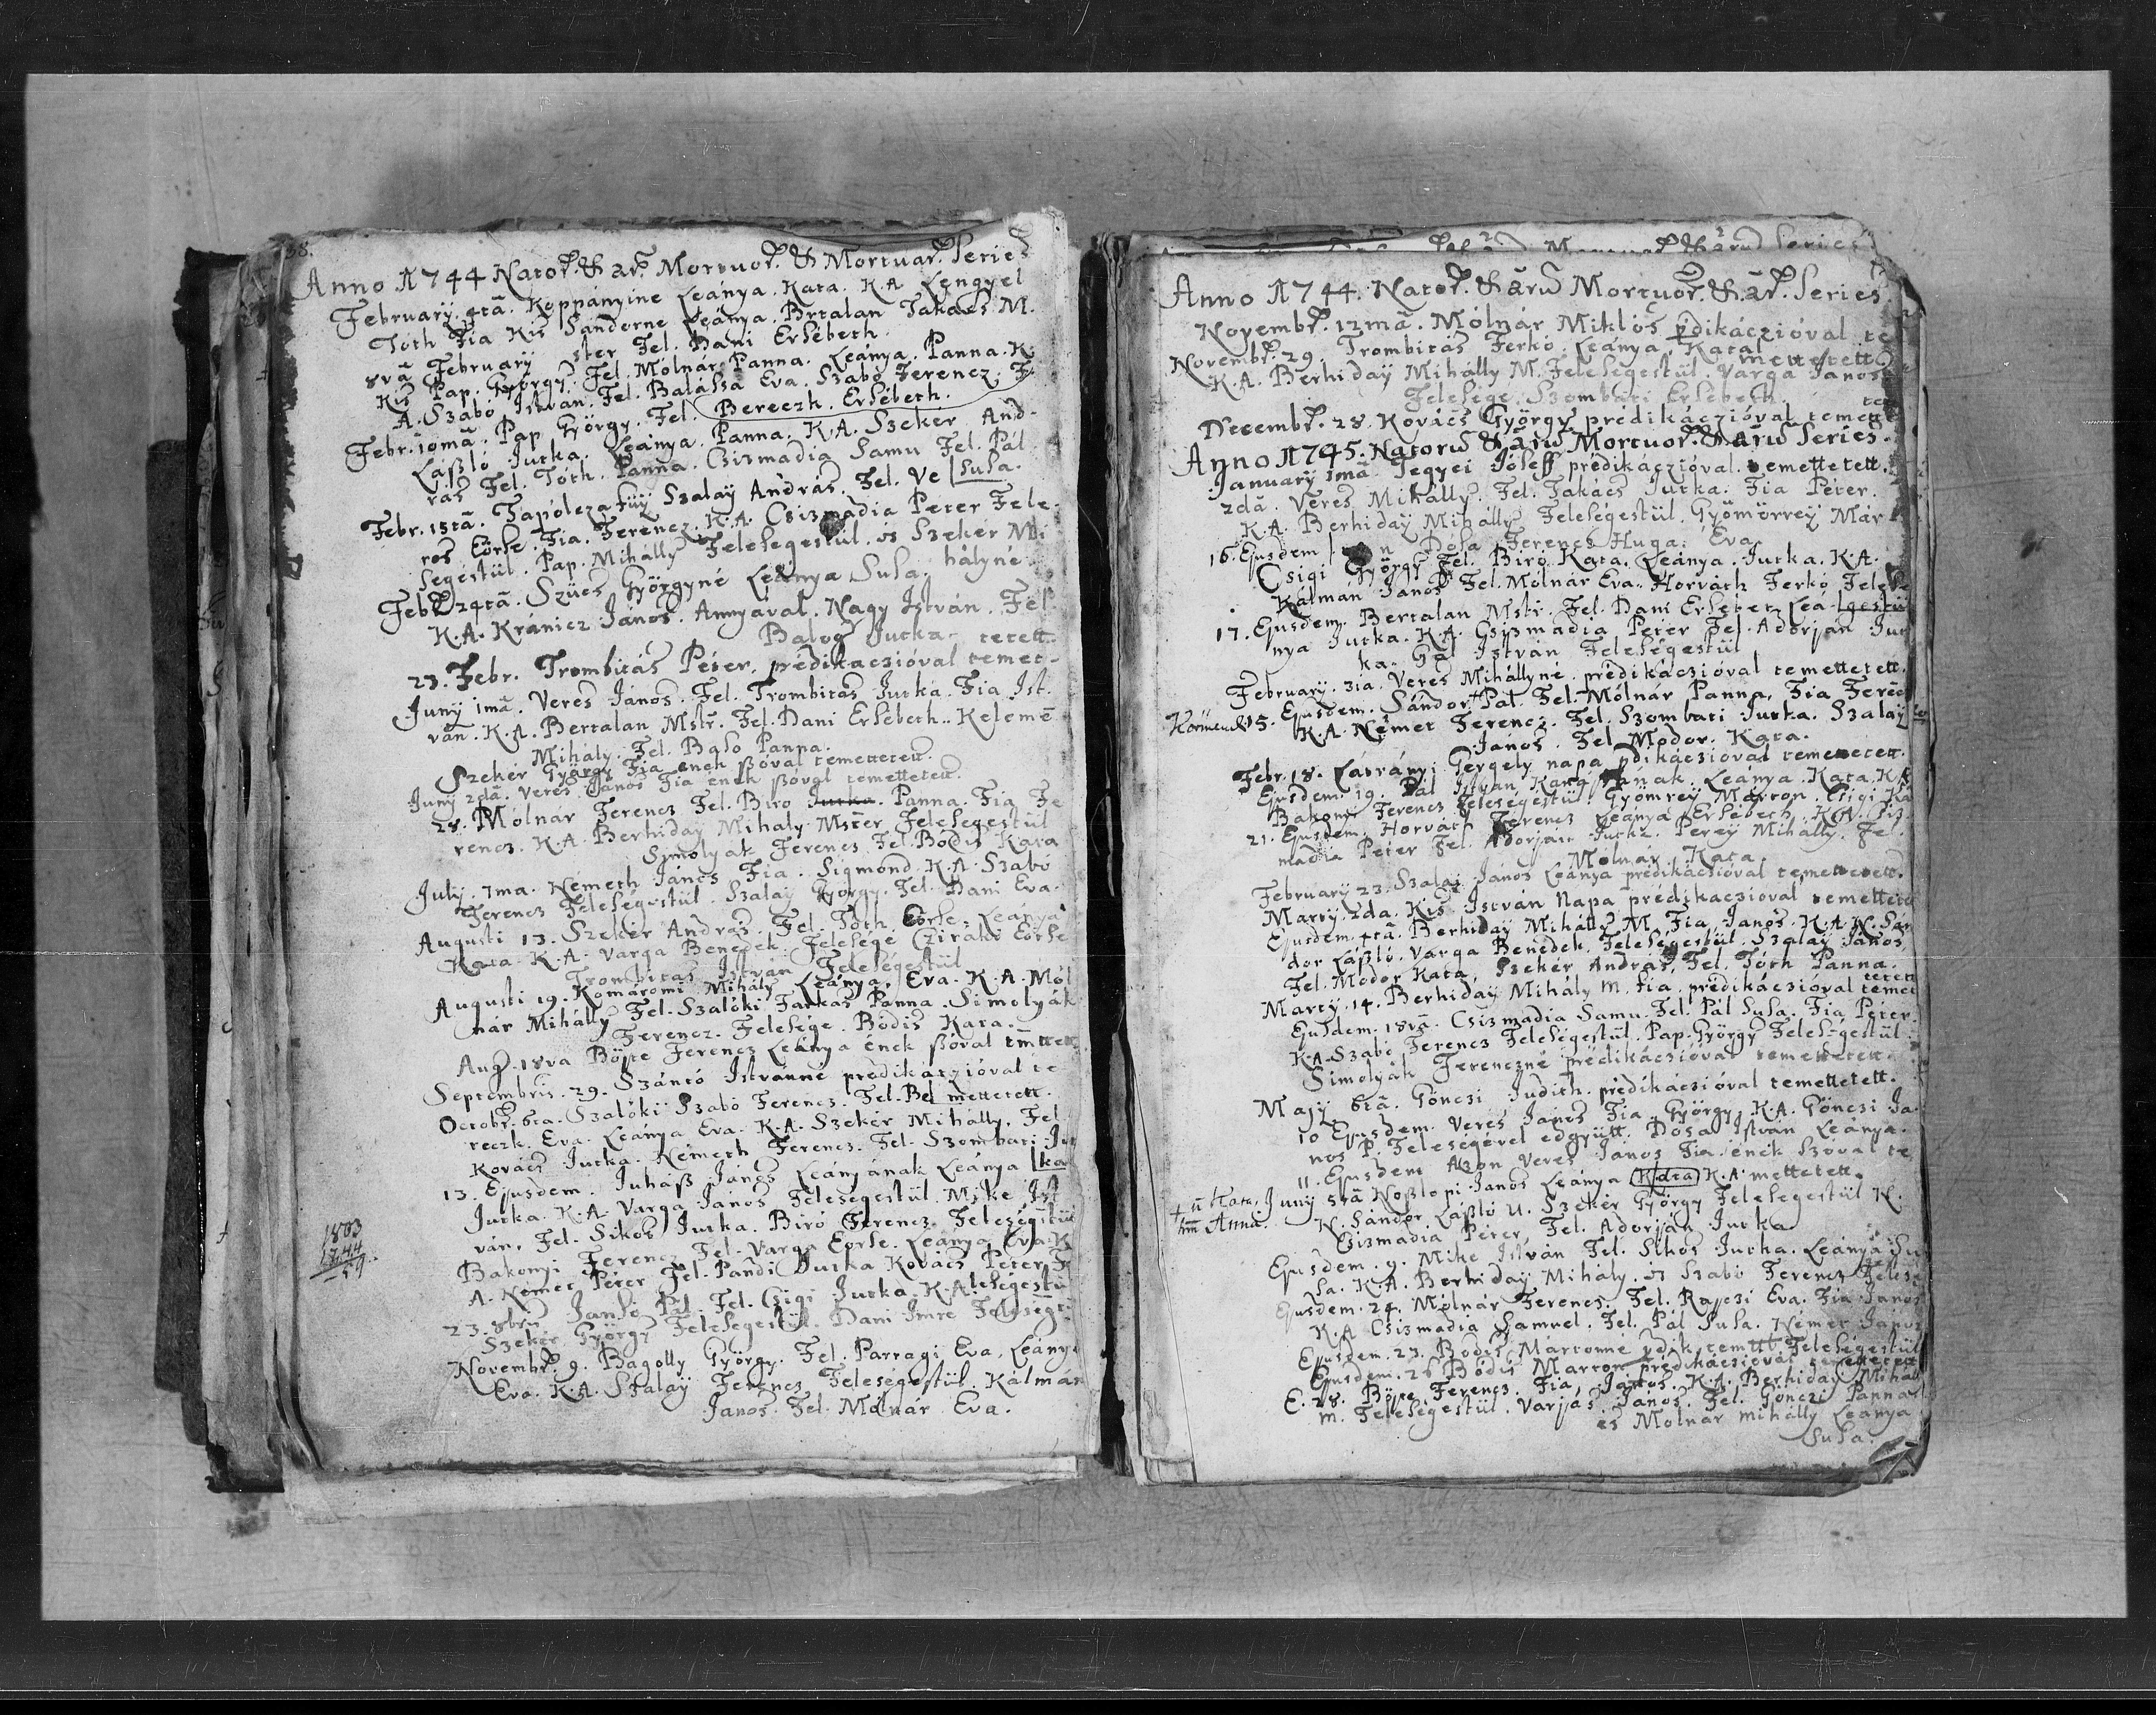 38.
Anno 1744 Nator. & ar. Mortuor. & Mortuar. Series
February. 4tā. Koppányine Leánya. Kata. K.A. Lengyel
Tóth Fia Kis Sandorne Leánya. Brtalan Takács M.
8vā February ster Fel. Dani Ersébeth.
Kis Pap. György. Fel. Mólnár Panna. Leánya. Panna. K.
A. Szabó István. Fel. Balássa Eva. Szabó Ferencz. F.
Febr. 10mā. Pap György. Fel. Bereczk. Ersébeth.
László Jutka. Leánya. Panna. K.A. Szekér And-
rás Fel. Tóth. Panna. Csizmadia Samu Fel. Pál
Febr. 15tā. Tapólczafüÿ Szalaÿ András. Fel. Ve Susa.
res Eörse. Fia. Ferencz. K.A. Csizmadia Péter Fele-
ségestül. Pap. Mihálly Feleségestül. és Szekér Mi
Feb. 24tā. Szücs Györgyné Leánya Susa. hályné
K.A. Kranicz János. Annyával. Nagy István. Fel.
Balog Jutka. tetett
23. Febr. Trombitás Péter. prédikaczióval temet-
Junÿ 1mā. Veres János. Fel. Trombitás Jutka. Fia Ist-
ván. K.A. Bertalan Mstr. Fel. Dani Ersébeth. Kelemē
Mihály. Fel. Baso Panna.
Szekér György Fia ének szóval temettetett.
Junÿ 2dā. Veres János Fia ének szóval temettetett.
28. Mólnár Ferencz Fel. Biro Jutka. Panna. Fia Fe
rencz. K.A. Berhiday Mihaly Mster Feleségestül
Simolyák Ferencz Fel. Bódis Kata
July. 7ma. Németh János Fia. Sigmond. K.A. Szabó
Ferencz Feleségestül. Szalaÿ György. Fel. Dani Eva.
Augusti 13. Szekér András. Fel. Tóth Eörse. Leánya
Kata. K.A. Varga Benedek. Felesége Cziráki Eörse
Trombitás István Feleségestül
Augusti 19. Komáromi Mihály Leánya. Eva. K.A. Mól
nár Mihálly Fel. Szalóki Farkas Panna. Simolyák
Ferencz. Felesége. Bódis Kata.
Aug. 18va Böjte Ferencz Leánya ének szóval tmttett
Septembris. 29. Szántó Istvánné predikáczióval te
Octobr. 6ta. Szalóki Szabó Ferencz. Fel. Be mettetett.
reczk Eva. Leánya Eva. K.A. Szekér Mihálly. Fel.
Kovács Jutka. Németh Ferencz. Fel. Szombati Jut
13. Ejusdem. Juhász János Leányának Leánya ka
Jutka. K.A. Varga János Feleségestül. Mike Ist
ván. Fel. Sikos Jutka. Biró Ferencz. Feleségestül
Bakonyi Ferencz Fel. Varga Eörse. Leánya Eva. K
A. Német Péter Fel. Pandi Jutka Kovács Péter F
23. 8bris Jankó Pál. Fel. Csigi Jutka. K.A. leségestü
Szekér György Feleségestül. Dani Imre Feleségest
Novembr. 9. Bagolly György. Fel. Parragi Eva. Leánya
Eva. K.A. Szalaÿ Ferencz Feleségestül. Kálmán
János. Fel. Mólnár Eva.
1803
1744
59
Anno 1744. Nator. & ārū Mortuor. & ār. Series
Novembr. 12mā. Mólnár Miklós pdikáczióval te
Novembr. 29. Trombitás Ferkó. Leánya. Kata mettetett
K.A. Berhidaÿ Mihálly M. Feleségestül. Varga János
Felesége. Szombati Ersébeth.
Decembr. 28. Kovács György prédikáczióval temett
Anno 1745. Natorū & ārū Mortuor. & ārū Series.
January 1mā Tegyei Jóseff prédikáczióval. temettetett.
2dā. Veres Mihálly. Fel. Takács Jutka. Fia Péter.
K.A. Berhidaÿ Mihálly Feleségestül. Gyömörreÿ Már
16. Ejusdem Dósa Ferencz Huga. Eva.
Csigi György Fel. Biró Kata. Leánya. Jutka. K.A.
Kálmán János Fel. Mólnár Eva. Horváth Ferkó Felesé
17. Ejusdem. Bertalan Mstr. Fel. Dani Erséber. Leá gestü
nya Jutka. K.A. Csizmadia Péter Fel. Adorján Jut
ka. Gál István Feleségestül
February. 3ia. Veres Mihállyné. prédikáczióval temettetett.
Körmend 15. Ejusdem. Sándor Pál. Fel. Mólnár Panna. Fia Ferēcz
K.A. Német Ferencz. Fel. Szombati Jutka. Szalaÿ
János. Fel. Modor. Kata.
Febr. 18. Látrányi Gergely napa pdikáczióval temetetett.
Ejusdem. 19. Pál István Leánya. Kata. K.A
Bakony Ferencz Feleségestül. Gyömreÿ Márton. Csigi
21. Ejusdem. Horváth Ferencz Leánya Ersébeth. K.A. Csiz
madia Péter Fel. Adorján Jutka. Pereÿ Mihálly. Fel.
Mólnár. Kata.
Februarÿ 23. Szalai János Leánya prédikáczióval temettetett.
Martÿ. 2da. Kis István Napa prédikáczióval temettetett
Ejusdem. 4tā. Berhidaÿ Mihálly M. Fia János. K.A. N. Sán
dor László. Varga Benedek. Feleségestül. Szalaÿ János.
Fel. Módor Kata. Szekér András. Fel. Tóth Panna.
Martÿ. 14. Berhidaÿ Mihály M. Fia. prédikáczióval temet tetett
Ejusdem. 18vā. Csizmadia Samu. Fel. Pál Susa. Fia Péter.
K.A. Szabó Ferencz Feleségestül. Pap. György Feleségestül.
Simolyák Ferenczné prédikáczióval temettetett.
Majÿ 6tā. Gönczi Judith. prédikáczióval temettetett.
10 Ejusdem. Veres János Fia György. K.A. Gönczi Já
nos P. Feleségével edgyütt. Dósa István Leánya.
11. Ejusdem Azon Veres János Fia ének szóval te
Junÿ 5tā Noszlopi János Leánya Kata K.A. mettetett.
+ ū Kata.
hm̄ Anna.
N. Sándor László U. Szekér György Feleségestül N.
Csizmadia Péter, Fel. Adorján Jutka
Ejusdem. 9. Mike István Fel. Sikos Jutka. Leánya Su
sa. K.A. Berhidaÿ Mihály. és Szabó Ferencz Felesé
Ejusdem. 24. Mólnár Ferencz. Fel. Rajczi Eva. Fia János
K.A. Csizmadia Samuel. Fel. Pál Susa. Német János
Ejusdem. 23. Bódis Mártonné pdik. temttt. Feleségestül
Ejusdem. 26 Bódis Márton prédikáczióval temettetett
E. 28. Böjte Ferencz. Fia. János. K.A. Berhidaÿ Mihál
m. Feleségestül. Varjas János. Fel. Gönczi Panna
és Mólnár Mihálly Leánya
Susa.